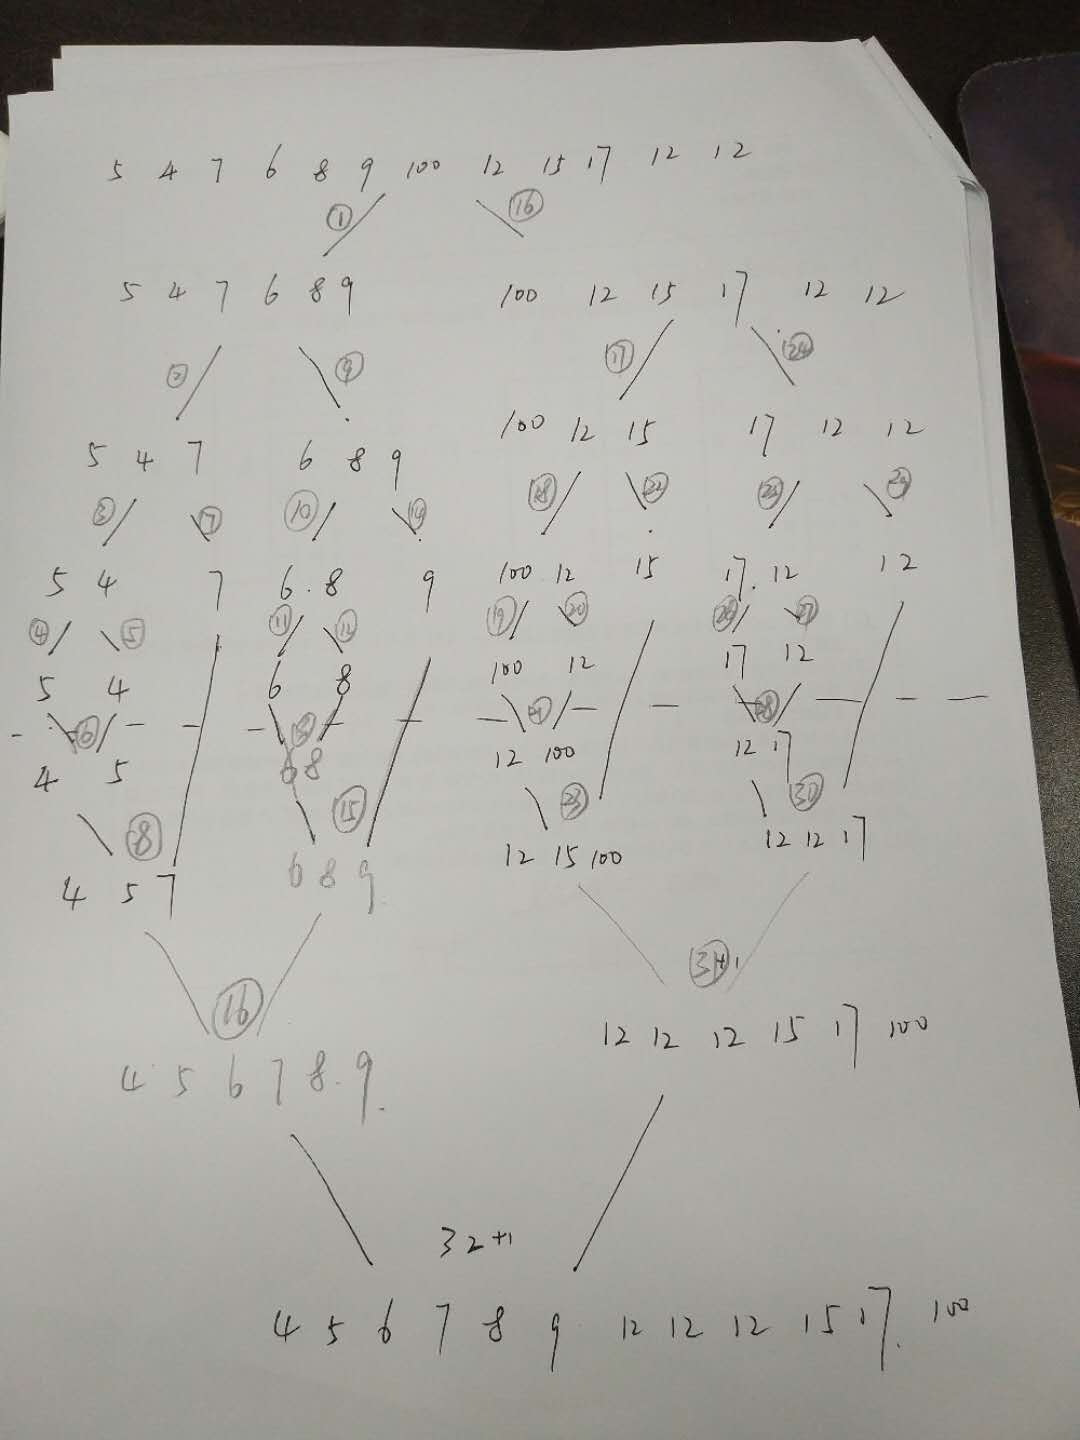 5 4 7 6 8 9 100 12 15 17 12 12
① ⑯
5 4 7 6 8 9 100 12 15 17 12 12
② ⑨ ⑰ ㉔
5 4 7 6 8 9 100 12 15 17 12 12
③ ⑦ ⑩ ⑭ ⑱ ㉒ ㉕ ㉙
5 4 7 6 8 9 100 12 15 17 12 12
④ ⑤ ⑪ ⑫ ⑲ ⑳ ㉖ ㉗
5 4 6 8 100 12 17 12
⑥ ⑬ ㉑ ㉘
4 5 6 8 12 100 12 17
⑧ ⑮ ㉓ ㉚
4 5 7 6 8 9 12 15 100 12 12 17
⑯ ㉛+1
4 5 6 7 8 9 12 12 12 15 17 100
32+1
4 5 6 7 8 9 12 12 12 15 17 100